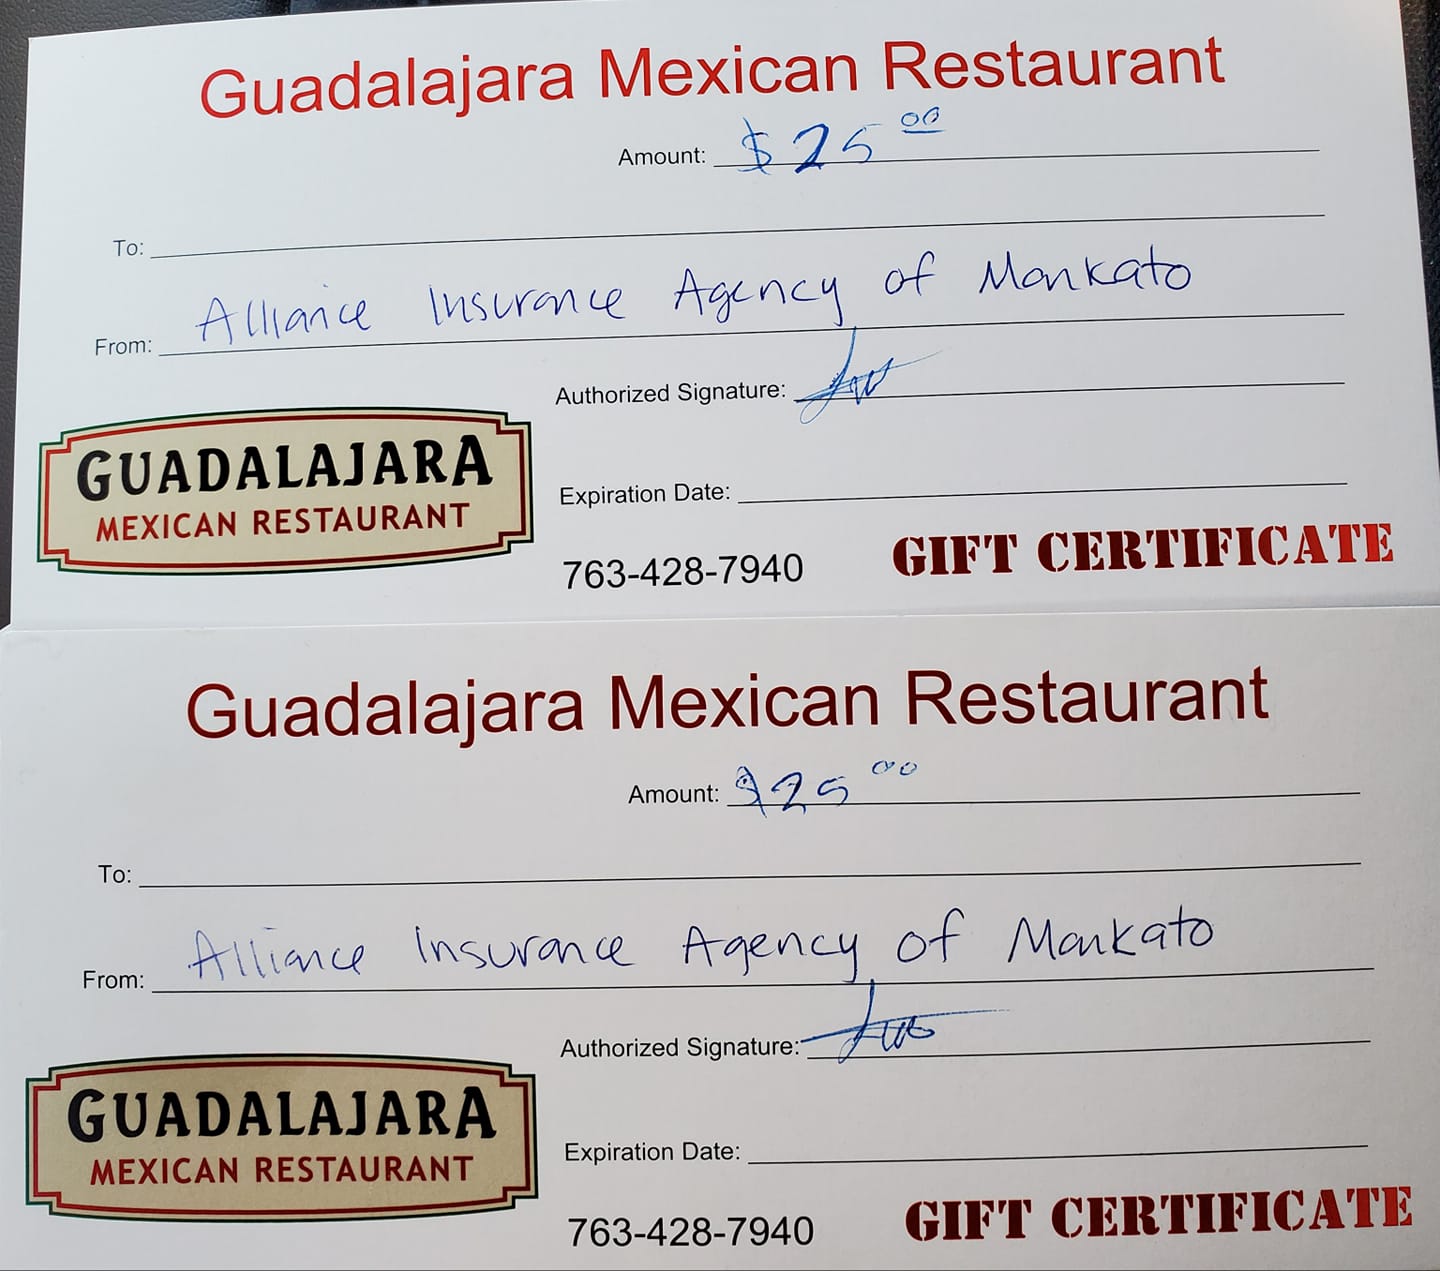 Guadalajara Mexican Restaurant
Amount: $25.00
To:
From: Alliance Insurance Agency of Mankato
Authorized Signature:
GUADALAJARA
MEXICAN RESTAURANT
Expiration Date:
763-428-7940
GIFT CERTIFICATE
Guadalajara Mexican Restaurant
Amount: $25 00
To:
From: Alliance Insurance Agency of Mankato
Authorized Signature:
GUADALAJARA
MEXICAN RESTAURANT
Expiration Date:
763-428-7940
GIFT CERTIFICATE